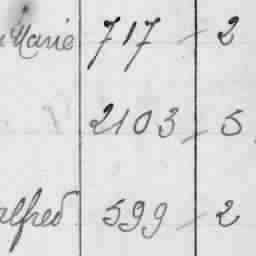 Marie 717 - 2
2103 - 5
alfred 599 - 2